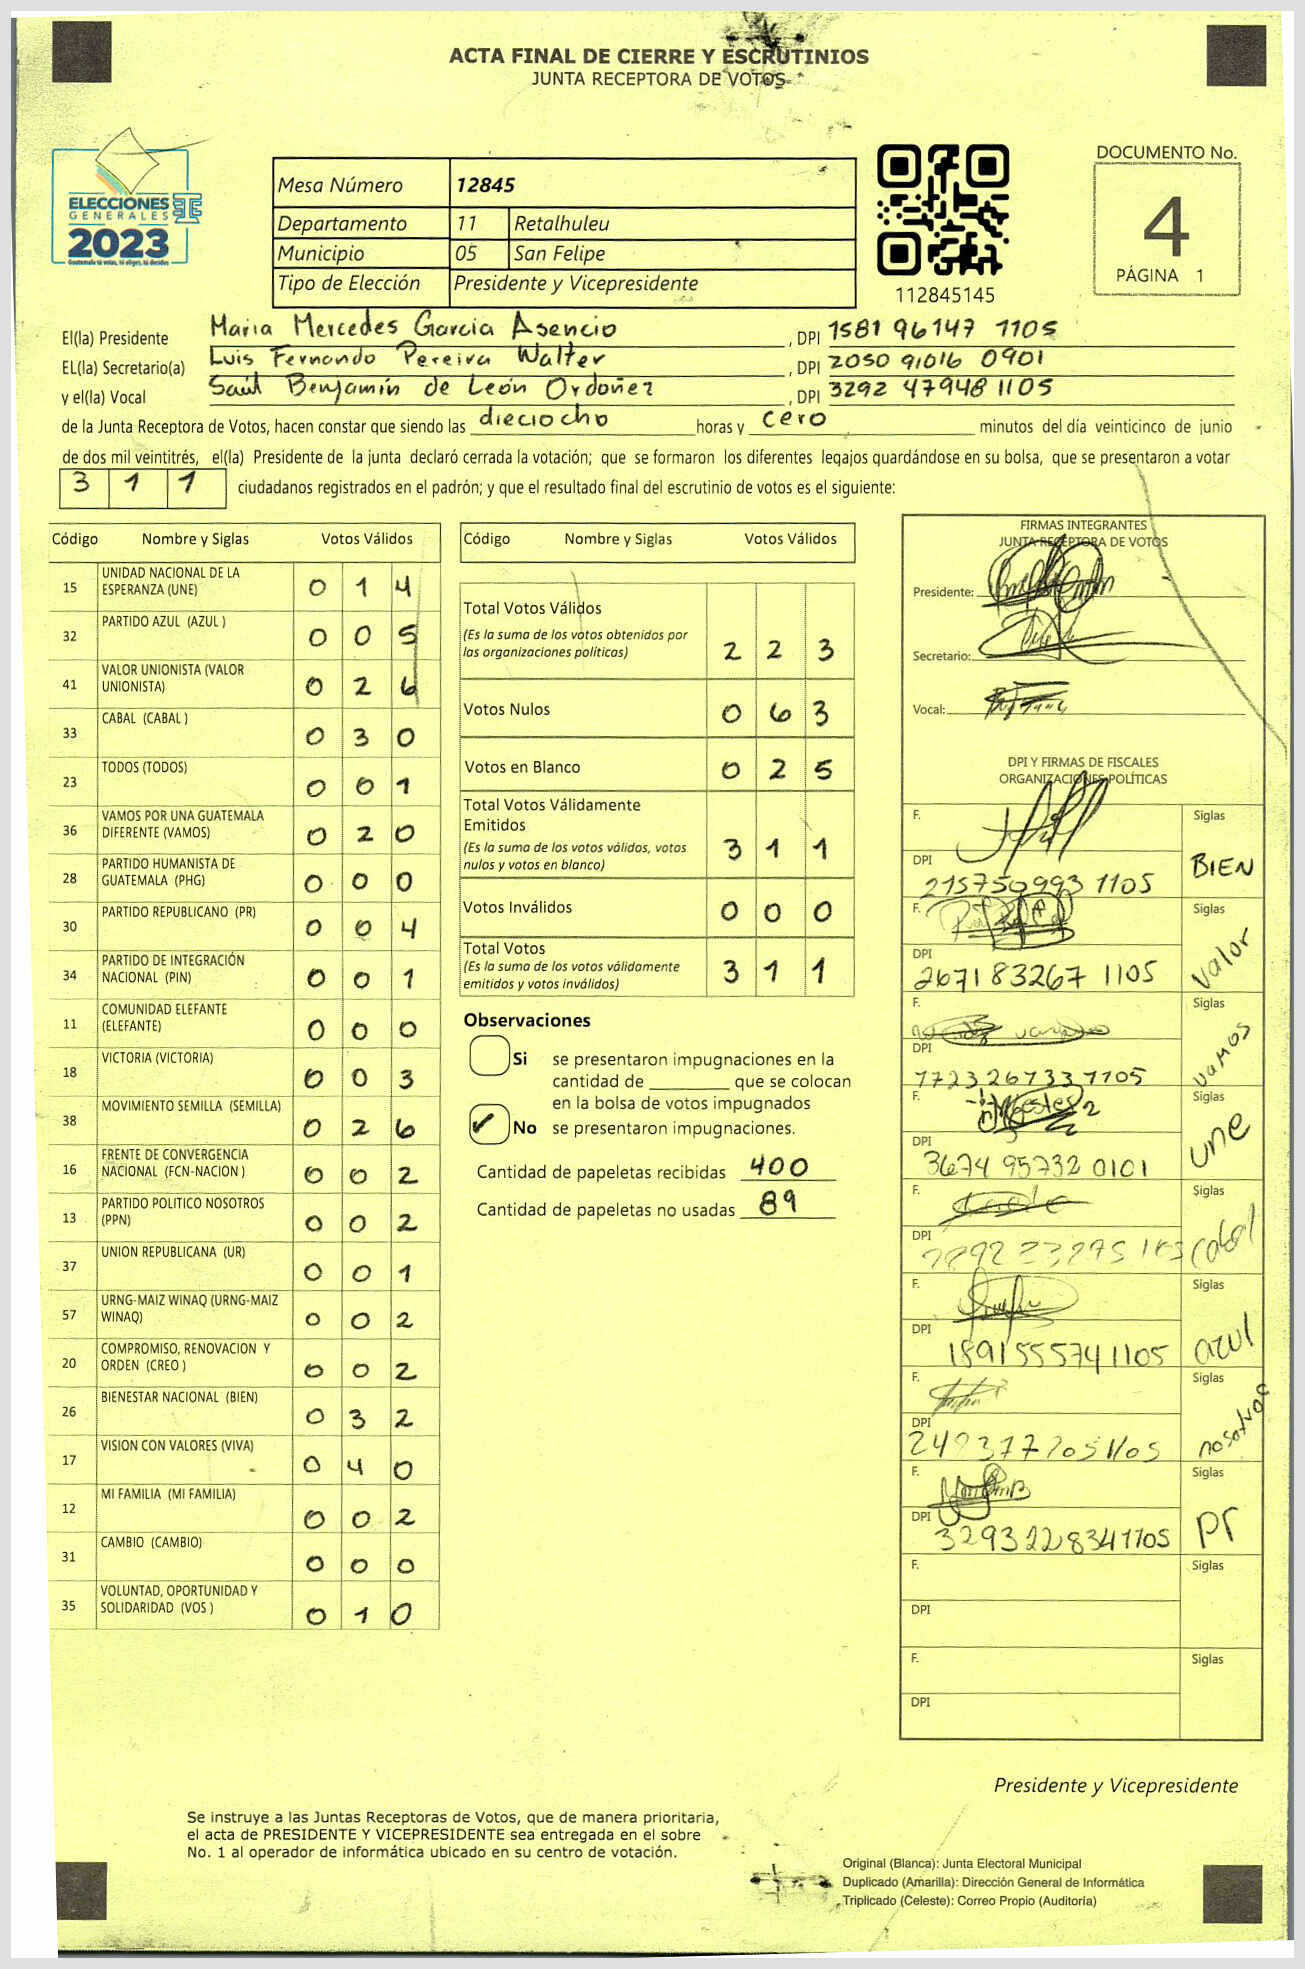 ACTA FINAL DE CIERRE Y ESCRUTINIOS
JUNTA RECEPTORA DE VOTOS
ELECCIONES
GENERALES
2023
Guatemala tú votas, tú eliges, tú decides
Mesa Número 12845
Departamento 11 Retalhuleu
Municipio 05 San Felipe
Tipo de Elección Presidente y Vicepresidente
112845145
DOCUMENTO No.
4
PÁGINA 1
El(la) Presidente Maria Mercedes Garcia Asencio , DPI 1581 96147 1105
EL(la) Secretario(a) Luis Fernando Pereira Walter , DPI 2050 91016 0901
y el(la) Vocal Saúl Benjamín de León Ordoñez , DPI 3292 47948 1105
de la Junta Receptora de Votos, hacen constar que siendo las dieciocho horas y cero minutos del día veinticinco de junio
de dos mil veintitrés, el(la) Presidente de la junta declaró cerrada la votación; que se formaron los diferentes legajos guardándose en su bolsa, que se presentaron a votar
3 1 1 ciudadanos registrados en el padrón; y que el resultado final del escrutinio de votos es el siguiente:
Código Nombre y Siglas Votos Válidos
15 UNIDAD NACIONAL DE LA ESPERANZA (UNE) 0 1 4
32 PARTIDO AZUL (AZUL ) 0 0 5
41 VALOR UNIONISTA (VALOR UNIONISTA) 0 2 6
33 CABAL (CABAL ) 0 3 0
23 TODOS (TODOS) 0 0 1
36 VAMOS POR UNA GUATEMALA DIFERENTE (VAMOS) 0 2 0
28 PARTIDO HUMANISTA DE GUATEMALA (PHG) 0 0 0
30 PARTIDO REPUBLICANO (PR) 0 0 4
34 PARTIDO DE INTEGRACIÓN NACIONAL (PIN) 0 0 1
11 COMUNIDAD ELEFANTE (ELEFANTE) 0 0 0
18 VICTORIA (VICTORIA) 0 0 3
38 MOVIMIENTO SEMILLA (SEMILLA) 0 2 6
16 FRENTE DE CONVERGENCIA NACIONAL (FCN-NACION ) 0 0 2
13 PARTIDO POLITICO NOSOTROS (PPN) 0 0 2
37 UNION REPUBLICANA (UR) 0 0 1
57 URNG-MAIZ WINAQ (URNG-MAIZ WINAQ) 0 0 2
20 COMPROMISO, RENOVACION Y ORDEN (CREO ) 0 0 2
26 BIENESTAR NACIONAL (BIEN) 0 3 2
17 VISION CON VALORES (VIVA) 0 4 0
12 MI FAMILIA (MI FAMILIA) 0 0 2
31 CAMBIO (CAMBIO) 0 0 0
35 VOLUNTAD, OPORTUNIDAD Y SOLIDARIDAD (VOS ) 0 1 0
Código Nombre y Siglas Votos Válidos
Total Votos Válidos
(Es la suma de los votos obtenidos por
las organizaciones políticas) 2 2 3
Votos Nulos 0 6 3
Votos en Blanco 0 2 5
Total Votos Válidamente
Emitidos
(Es la suma de los votos válidos, votos
nulos y votos en blanco) 3 1 1
Votos Inválidos 0 0 0
Total Votos
(Es la suma de los votos válidamente
emitidos y votos inválidos) 3 1 1
Observaciones
Si se presentaron impugnaciones en la
cantidad de ________ que se colocan
en la bolsa de votos impugnados
No se presentaron impugnaciones.
Cantidad de papeletas recibidas 400
Cantidad de papeletas no usadas 89
FIRMAS INTEGRANTES
JUNTA RECEPTORA DE VOTOS
Presidente:
Secretario:
Vocal:
DPI Y FIRMAS DE FISCALES
ORGANIZACIONES POLÍTICAS
F. Siglas
DPI 215750993 1105 BIEN
F. Siglas
DPI 2671 83267 1105 valor
F. Siglas
DPI 1723267337105 vamos
F. Siglas
DPI 3674 95732 0101 une
F. Siglas
DPI cabal
F. Siglas
DPI 1891555741105 azul
F. Siglas
DPI nosotros
F. Siglas
DPI 3293228341105 pr
F. Siglas
DPI
F. Siglas
DPI
Presidente y Vicepresidente
Se instruye a las Juntas Receptoras de Votos, que de manera prioritaria,
el acta de PRESIDENTE Y VICEPRESIDENTE sea entregada en el sobre
No. 1 al operador de informática ubicado en su centro de votación.
Original (Blanca): Junta Electoral Municipal
Duplicado (Amarilla): Dirección General de Informática
Triplicado (Celeste): Correo Propio (Auditoría)